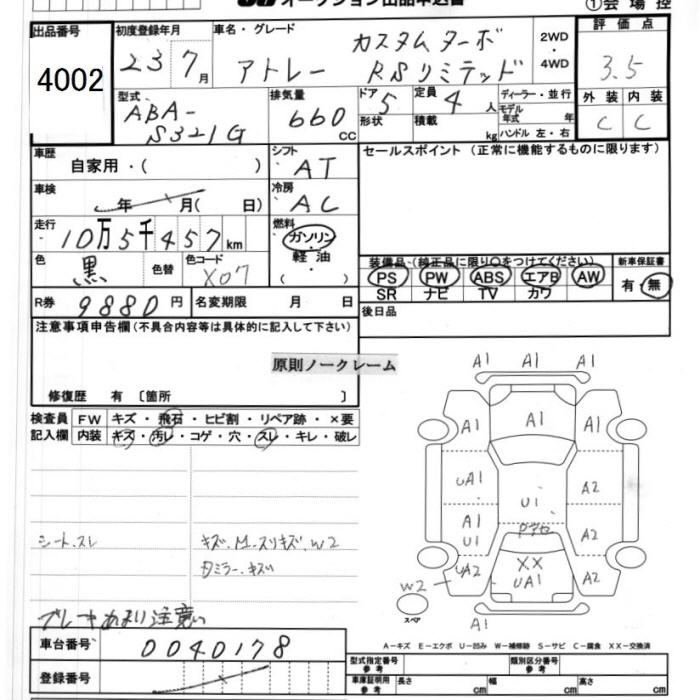 オークション出品申込書
① 会場控
出品番号
4002
初度登録年月
23 7月
車名・グレード
カスタムターボ
アトレー RSリミテッド
2WD・4WD
評価点
3.5
外装 内装
C C
型式
ABA-
S321G
排気量
660 cc
ドア 5
形状
定員 4人
積載 kg
ディーラー・並行
モデル年式 年
ハンドル 左・右
車歴
自家用・( )
シフト
AT
セールスポイント(正常に機能するものに限ります)
車検
年 月( 日)
冷房
AC
走行
10万5千457km
燃料
ガソリン・軽油・( )
色
黒
色替
色コード
X07
装備品(純正品に限り○をつけてください)
PS PW ABS エアB AW
SR ナビ TV カワ
新車保証書
有・無
R券 9880円
名変期限 月 日
後日品
注意事項申告欄(不具合内容等は具体的に記入して下さい)
原則ノークレーム
修復歴 有 〔箇所 〕
検査員記入欄
FW キズ・飛石・ヒビ割・リペア跡・×要
内装 キズ・汚レ・コゲ・穴・スレ・キレ・破レ
シートスレ
キズ、M、スリキズ、W2
タミラーキズ
A1 A1 A1
A1 A1 A1
UA1 A2
U1
A1 U1 A2
Pアセ
UA2 XX UA1 A2
W2
スペア
A1
A-キズ E-エクボ U-凹み W-補修跡 S-サビ C-腐食 XX-交換済
車台番号
0040178
登録番号
型式指定番号 参考
類別区分番号 参考
車庫証明用 参考
長さ cm
幅 cm
高さ cm